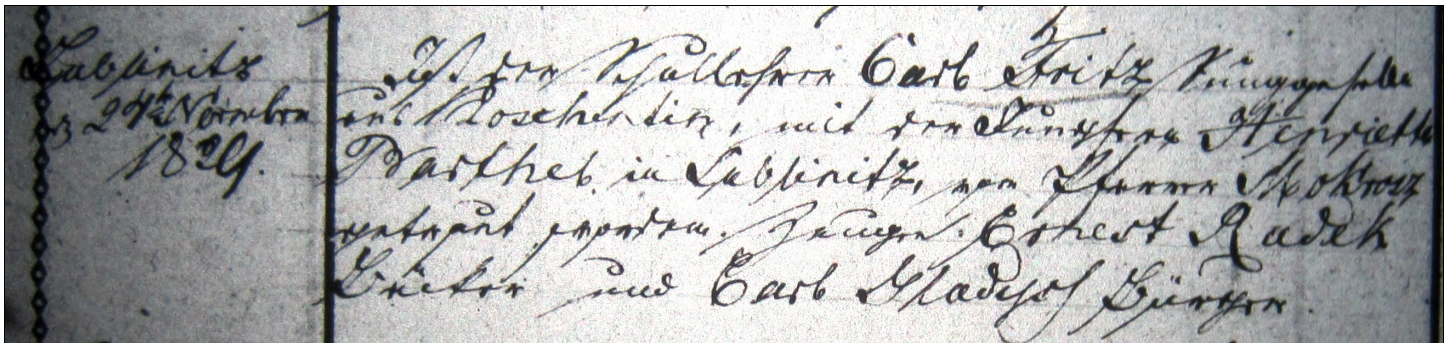 Lublinitz
24t November
1829.
Ist der Schullehrer Carl Fritz Junggeselle
aus Koschentin, mit der Jungfrau Henriette
Barthel in Lublinitz, vom Pfarrer
getraut worden. Zeugen: Ernest Radek
Bäcker und Carl Gladysch Bürger.